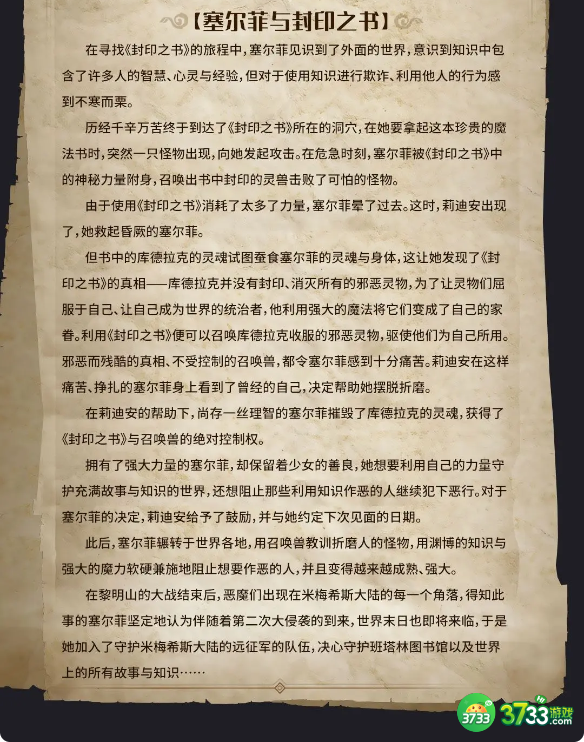 【塞尔菲与封印之书】
在寻找《封印之书》的旅程中，塞尔菲见识到了外面的世界，意识到知识中包
含了许多人的智慧、心灵与经验，但对于使用知识进行欺诈、利用他人的行为感
到不寒而栗。
历经千辛万苦终于到达了《封印之书》所在的洞穴，在她要拿起这本珍贵的魔
法书时，突然一只怪物出现，向她发起攻击。在危急时刻，塞尔菲被《封印之书》中
的神秘力量附身，召唤出书中封印的灵兽击败了可怕的怪物。
由于使用《封印之书》消耗了太多了力量，塞尔菲晕了过去。这时，莉迪安出现
了，她救起昏厥的塞尔菲。
但书中的库德拉克的灵魂试图蚕食塞尔菲的灵魂与身体，这让她发现了《封
印之书》的真相——库德拉克并没有封印、消灭所有的邪恶灵物，为了让灵物们屈
服于自己、让自己成为世界的统治者，他利用强大的魔法将它们变成了自己的家
眷。利用《封印之书》便可以召唤库德拉克收服的邪恶灵物，驱使他们为自己所用。
邪恶而残酷的真相、不受控制的召唤兽，都令塞尔菲感到十分痛苦。莉迪安在这样
痛苦、挣扎的塞尔菲身上看到了曾经的自己，决定帮助她摆脱折磨。
在莉迪安的帮助下，尚存一丝理智的塞尔菲摧毁了库德拉克的灵魂，获得了
《封印之书》与召唤兽的绝对控制权。
拥有了强大力量的塞尔菲，却保留着少女的善良，她想要利用自己的力量守
护充满故事与知识的世界，还想阻止那些利用知识作恶的人继续犯下恶行。对于
塞尔菲的决定，莉迪安给予了鼓励，并与她约定下次见面的日期。
此后，塞尔菲辗转于世界各地，用召唤兽教训折磨人的怪物，用渊博的知识与
强大的魔力软硬兼施地阻止想要作恶的人，并且变得越来越成熟、强大。
在黎明山的大战结束后，恶魔们出现在米梅希斯大陆的每一个角落，得知此
事的塞尔菲坚定地认为伴随着第二次大侵袭的到来，世界末日也即将来临，于是
她加入了守护米梅希斯大陆的远征军的队伍，决心守护班塔林图书馆以及世界
上的所有故事与知识……
3733 3733游戏 Hi .com